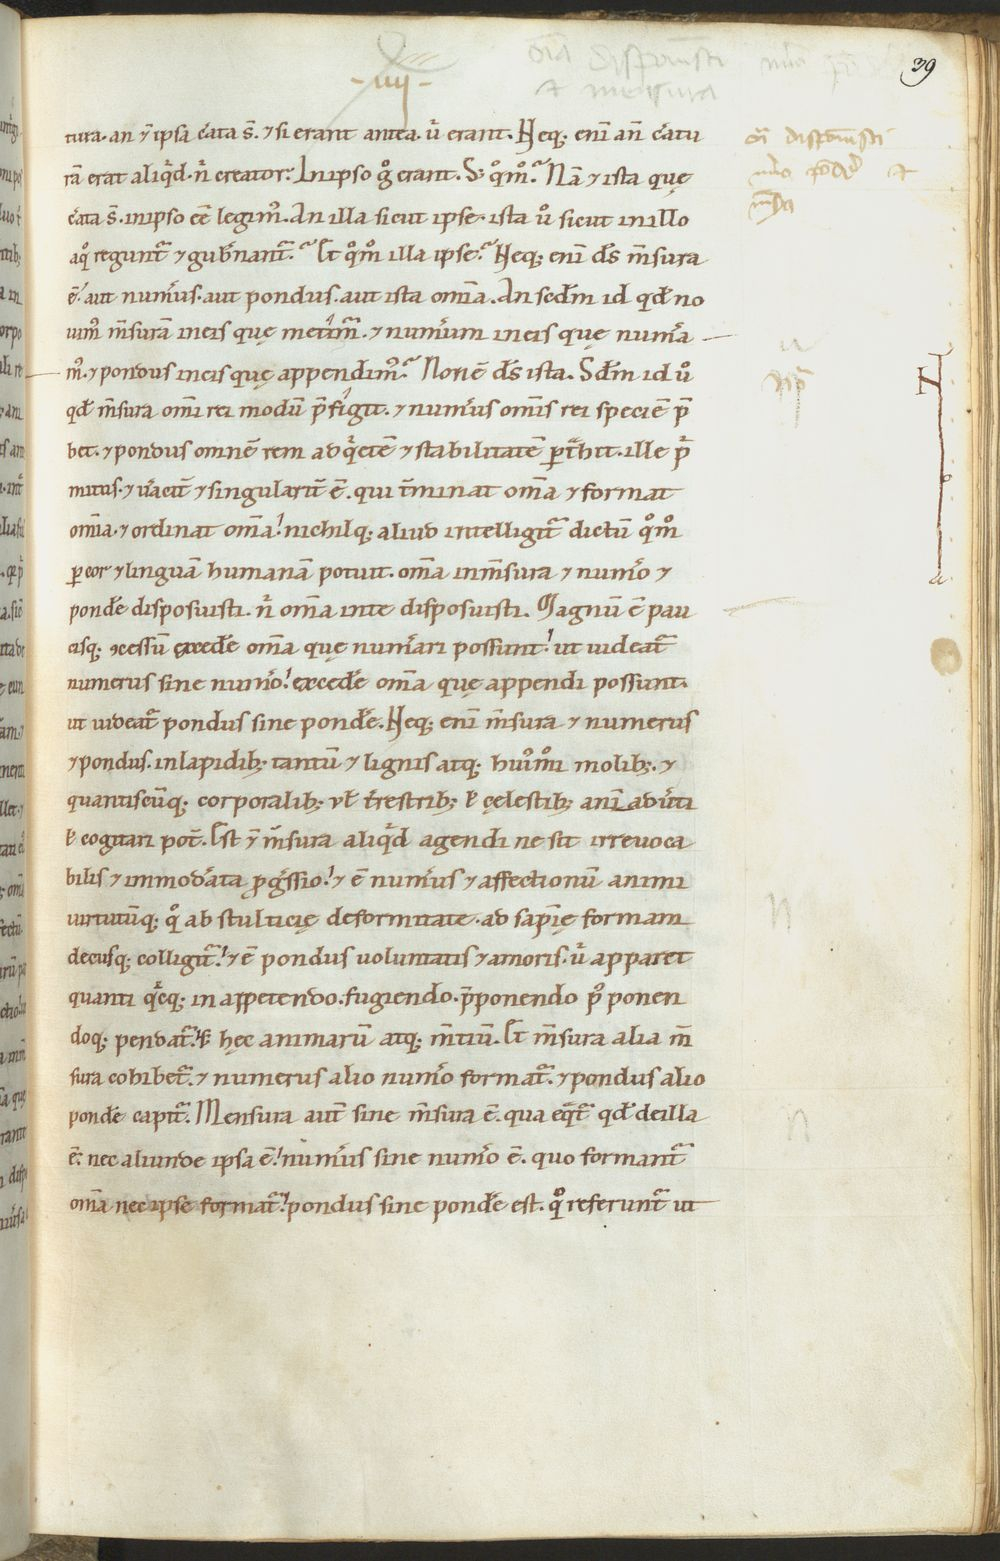 -·iiij·-
39
oi̅a disposuisti
et mensura
tura· an ⁊ ipsa c̓ata s̅· ⁊ si erant antea· u̓ erant· Neq; eni̅ an̅ c̓atu
ra̅ erat aliq̓d· n̓ creator· In ipso g̊ erant· S; q̊m̊? Na̅ ⁊ ista quę
c̓ata s̅· in ipso e̅e̅ legim̓· An illa sicut ipse· ista ů sicut in illo
a q̓ regunt᷑ ⁊ gub̓nant᷑? Et q̊m̊ illa ipse? Neq; eni̅ d̅s m̅sura
e̅· aut num̓us· aut pondus· aut ista omi̅a· An scd̅m id qd̅ no
uim̓ m̅sura̅ in eis quę metim᷑· ⁊ num̓um in eis quę num̓a
m᷑· ⁊ pondus in eis quę appendim̓? Non e̅ d̅s ista· Scd̅m id ů
qd̅ m̅sura omi̅ rei modu̅ p̅figit· ⁊ num̓us om̅is rei specie̅ p̅
bet· ⁊ pondus omne̅ rem ad q̓ete̅ ⁊ stabilitate̅ p̲t̓hit· ille p̓
mitus· ⁊ u̓acit̅ ⁊ singularit̅ e̅· qui t̓minat om̅a ⁊ format
om̅ia· ⁊ ordinat om̅a· nichilq; aliud intelligit᷑ dictu̅ q̊m̊
p̲ cor ⁊ lingua̅ humana̅ potuit· om̅a in m̅sura ⁊ num̓o ⁊
pond̓e disposuisti· n̓ om̅a in te disposuisti· Magnu̅ e̅ pau
cisq; ꝯcessu̅ exced̓e om̅a quę num̓ari possunt· ut uideat᷑
numerus sine num̓o· exced̓e om̅a quę appendi possunt·
ut uideat᷑ pondus sine pond̓e· Neq; eni̅ m̅sura ⁊ numerus
⁊ pondus· in lapidib; tantu̅ ⁊ lignis atq; hui̊m̊i molib;· ⁊
quantiscu̅q; corporalib; ul̅ t̓restrib; l̅ cęlestib; ani̅aduti
l̅ cogitari pot̅· Est ⁊ m̅sura aliq̓d agendi ne sit irreuoca
bilis ⁊ immod̓ata ꝓg̓ssio· ⁊ e̅ num̓us ⁊ affectionu̅ animi
uirtutu̅q; q̊ ab stulticię deformitate· ad sapi̅ę formam
decusq; colligit᷑· ⁊ e̅ pondus uoluntatis ⁊ amoris· u̓ apparet
quanti q̓eq; in appetendo· fugiendo· p̅ponendo p̊ponen
doq; pendat᷑· S; hęc animaru̅ atq; m̅tiu̅· Et m̅sura alia m̅
sura cohibet᷑· ⁊ numerus alio num̓o format᷑· ⁊ pondus alio
pond̓e capit᷑· Mensura aut̅ sine m̅sura e̅· qua eq̓t᷑ qd̅ de illa
e̅· nec aliunde ipsa e̅· num̓us sine num̓o e̅· quo formant᷑
om̅a nec ipse format᷑· pondus sine pond̓e est· q̊ referunt᷑ ut
oi̅ disposuisti
et
N
n
n